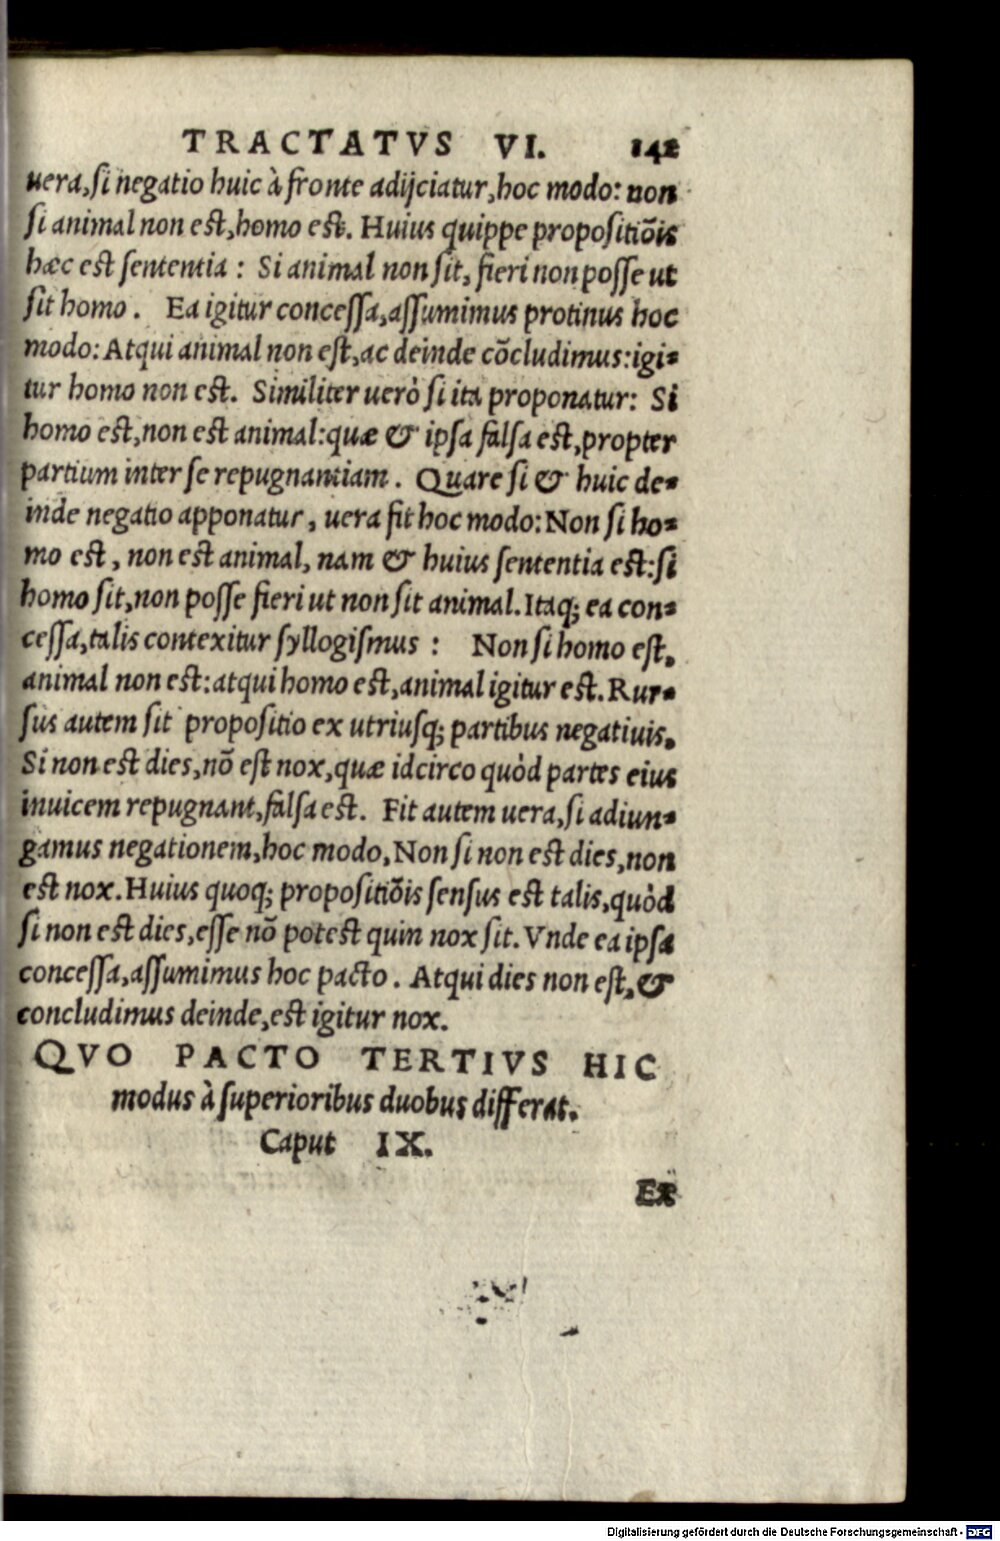 TRACTATVS VI. 142
uera, si negatio huic à fronte adijciatur, hoc modo: non
si animal non est, homo est. Huius quippe propositiõis
hæc est sententia : Si animal non sit, fieri non posse ut
sit homo. Ea igitur concessa, assumimus protinus hoc
modo: Atqui animal non est, ac deinde cõcludimus: igi-
tur homo non est. Similiter uerò si ita proponatur: Si
homo est, non est animal: quæ & ipsa falsa est, propter
partium inter se repugnantiam. Quare si & huic de-
inde negatio apponatur, uera fit hoc modo: Non si ho-
mo est, non est animal, nam & huius sententia est: si
homo sit, non posse fieri ut non sit animal. Itaq; ea con-
cessa, talis contexitur syllogismus : Non si homo est,
animal non est: atqui homo est, animal igitur est. Rur-
sus autem sit propositio ex utriusq; partibus negatiuis.
Si non est dies, nõ est nox, quæ idcirco quòd partes eius
inuicem repugnant, falsa est. Fit autem uera, si adiun-
gamus negationem, hoc modo, Non si non est dies, non
est nox. Huius quoq; propositiõis sensus est talis, quòd
si non est dies, esse nõ potest quin nox sit. Vnde ea ipsa
concessa, assumimus hoc pacto. Atqui dies non est, &
concludimus deinde, est igitur nox.
QVO PACTO TERTIVS HIC
modus à superioribus duobus differat.
Caput IX.
Ex
Digitalisierung gefördert durch die Deutsche Forschungsgemeinschaft - DFG